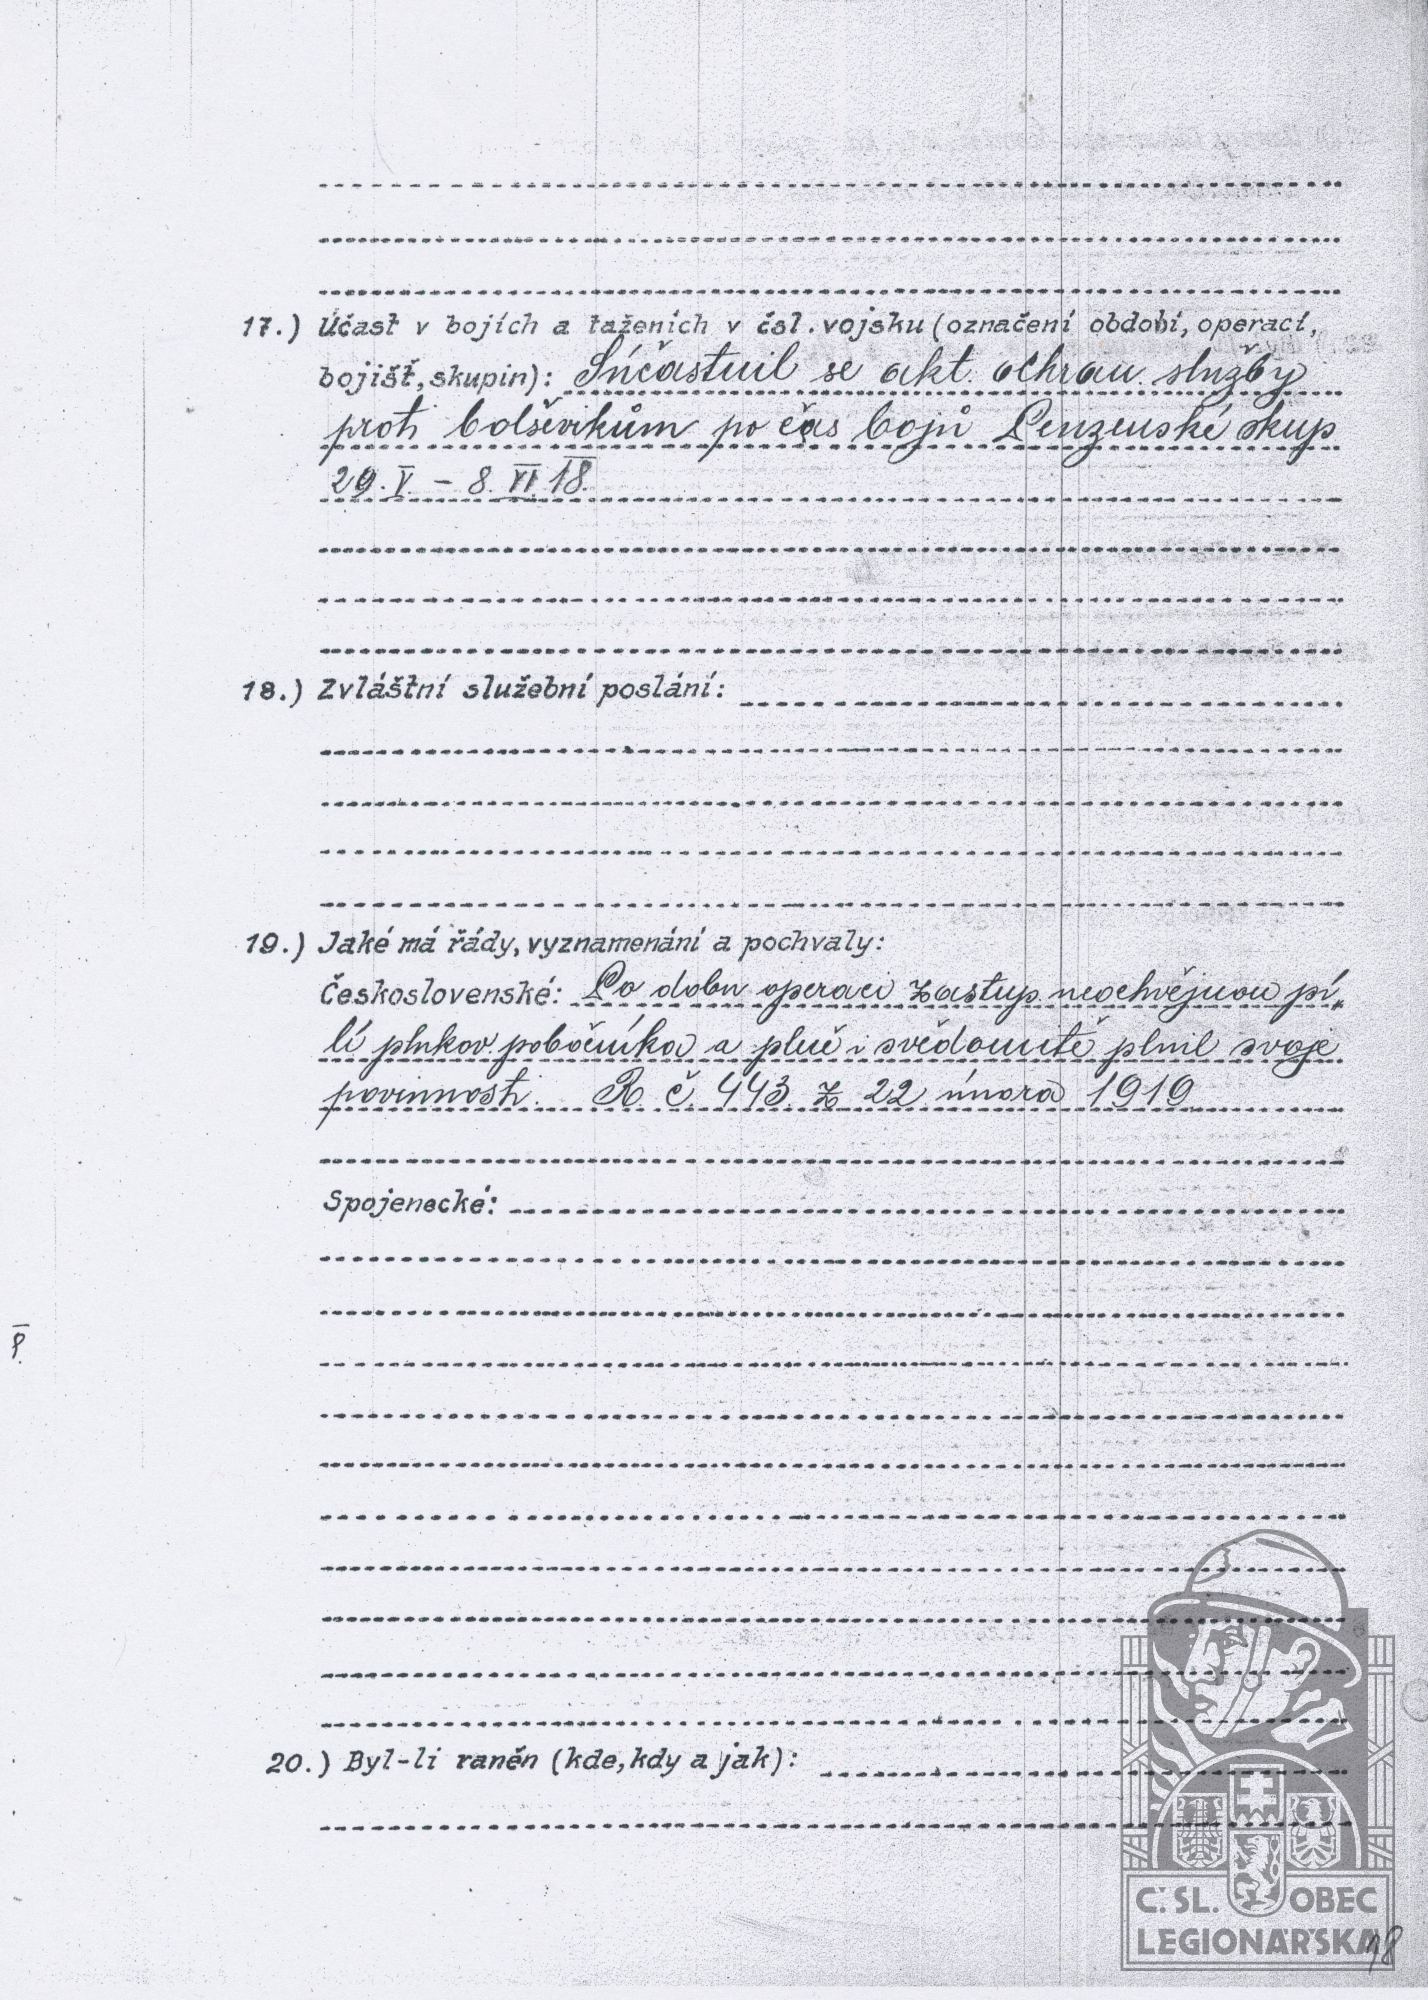 17.) Účast v bojích a taženích v čsl. vojsku (označení období, operací,
bojišť, skupin): Súčastnil se akt. ochran. služby
proti bolševikům po čas bojů Penzenské skup
29. V. – 8. VI. 18.
18.) Zvláštní služební poslání:
19.) Jaké má řády, vyznamenání a pochvaly:
Československé: Po dobu operaci zastup. neochvějnou pí-
lí plukov. pobočníka a plně i svědomitě plnil svoje
povinnosti. R. č. 443 z 22 února 1919
Spojenecké:
20.) Byl-li raněn (kde, kdy a jak):
Č. SL. OBEC
LEGIONÁŘSKÁ